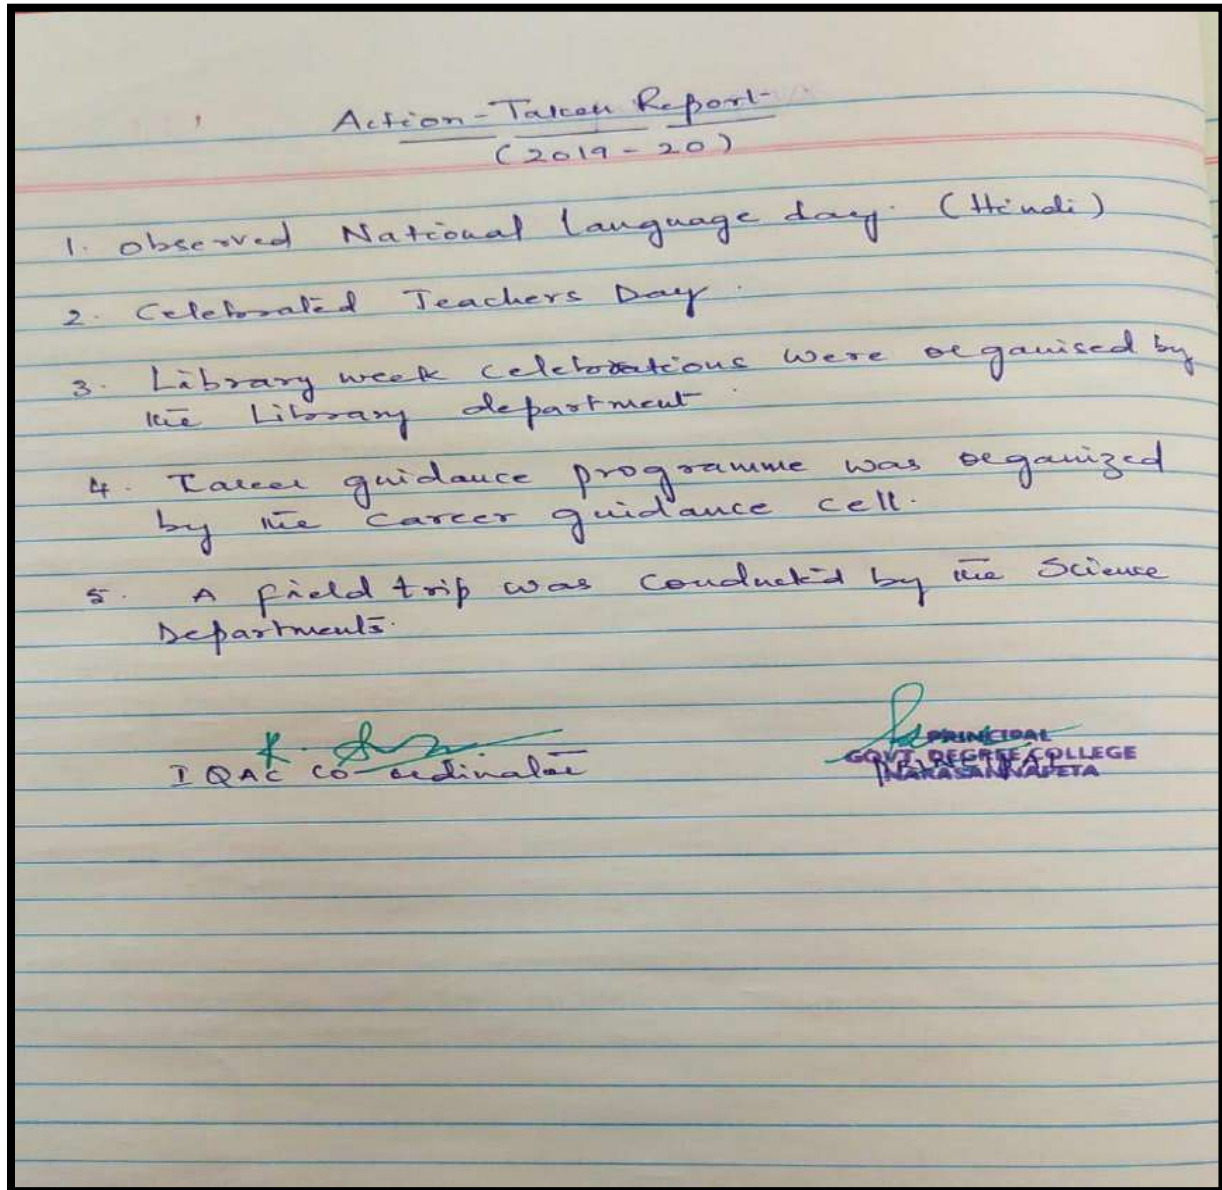 Action-Taken Report
(2019-20)
1. observed National language day. (Hindi)
2. Celebrated Teachers Day.
3. Library week celebrations were organised by
the Library department.
4. Career guidance programme was organized
by the career guidance cell.
5. A field trip was conducted by the Science
Departments.
IQAC co-ordinator
PRINCIPAL
GOVT. DEGREE COLLEGE
NARASANNAPETA